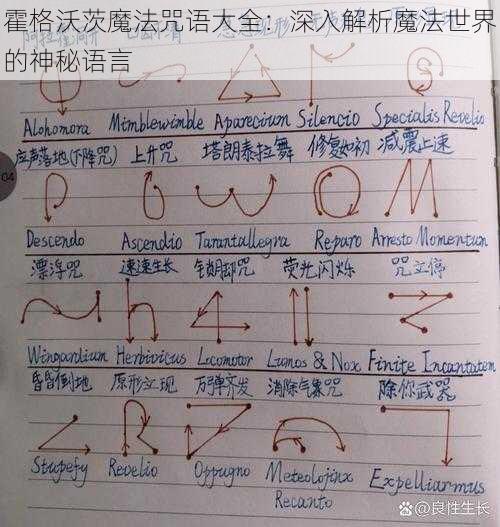 霍格沃茨魔法咒语大全：深入解析魔法世界
的神秘语言
Alohomora Mimblewimble Aparecium Silencio Specialis Revelio
应声落地(下降咒) 上升咒 塔朗泰拉舞 修复如初 减震止速
04
Descendo Ascendio Tarantallegra Reparo Arresto Momentum
漂浮咒 速速生长 锁腿咒 荧光闪烁 咒立停
Wingardium Herbivicus Locomotor Lumos & Nox Finite Incantatem
昏昏倒地 原形立现 万弹齐发 消除气象咒 除你武器
Stupefy Revelio Oppugno Meteolojinx Expelliarmus
Recanto
良性生长